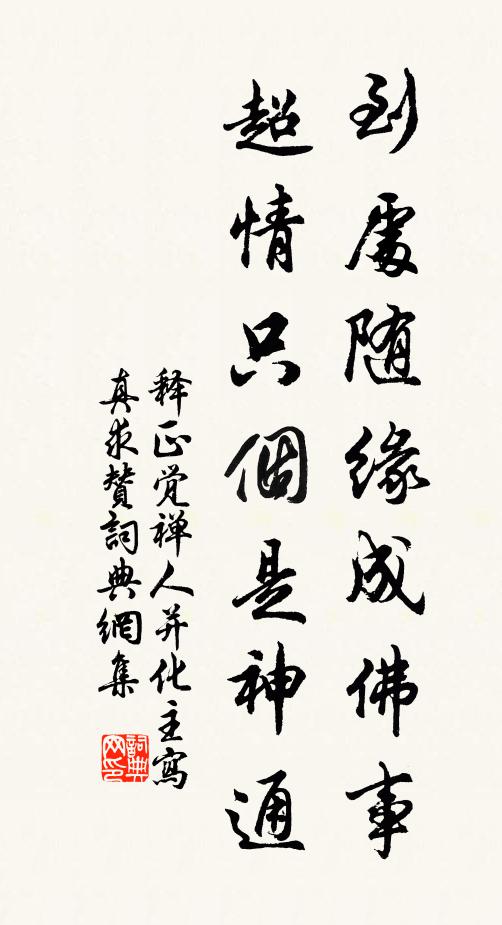 到處随緣成佛事
超情只個是神通
释正觉禅人并化主寫
真求賛詞典網集
詞典网印